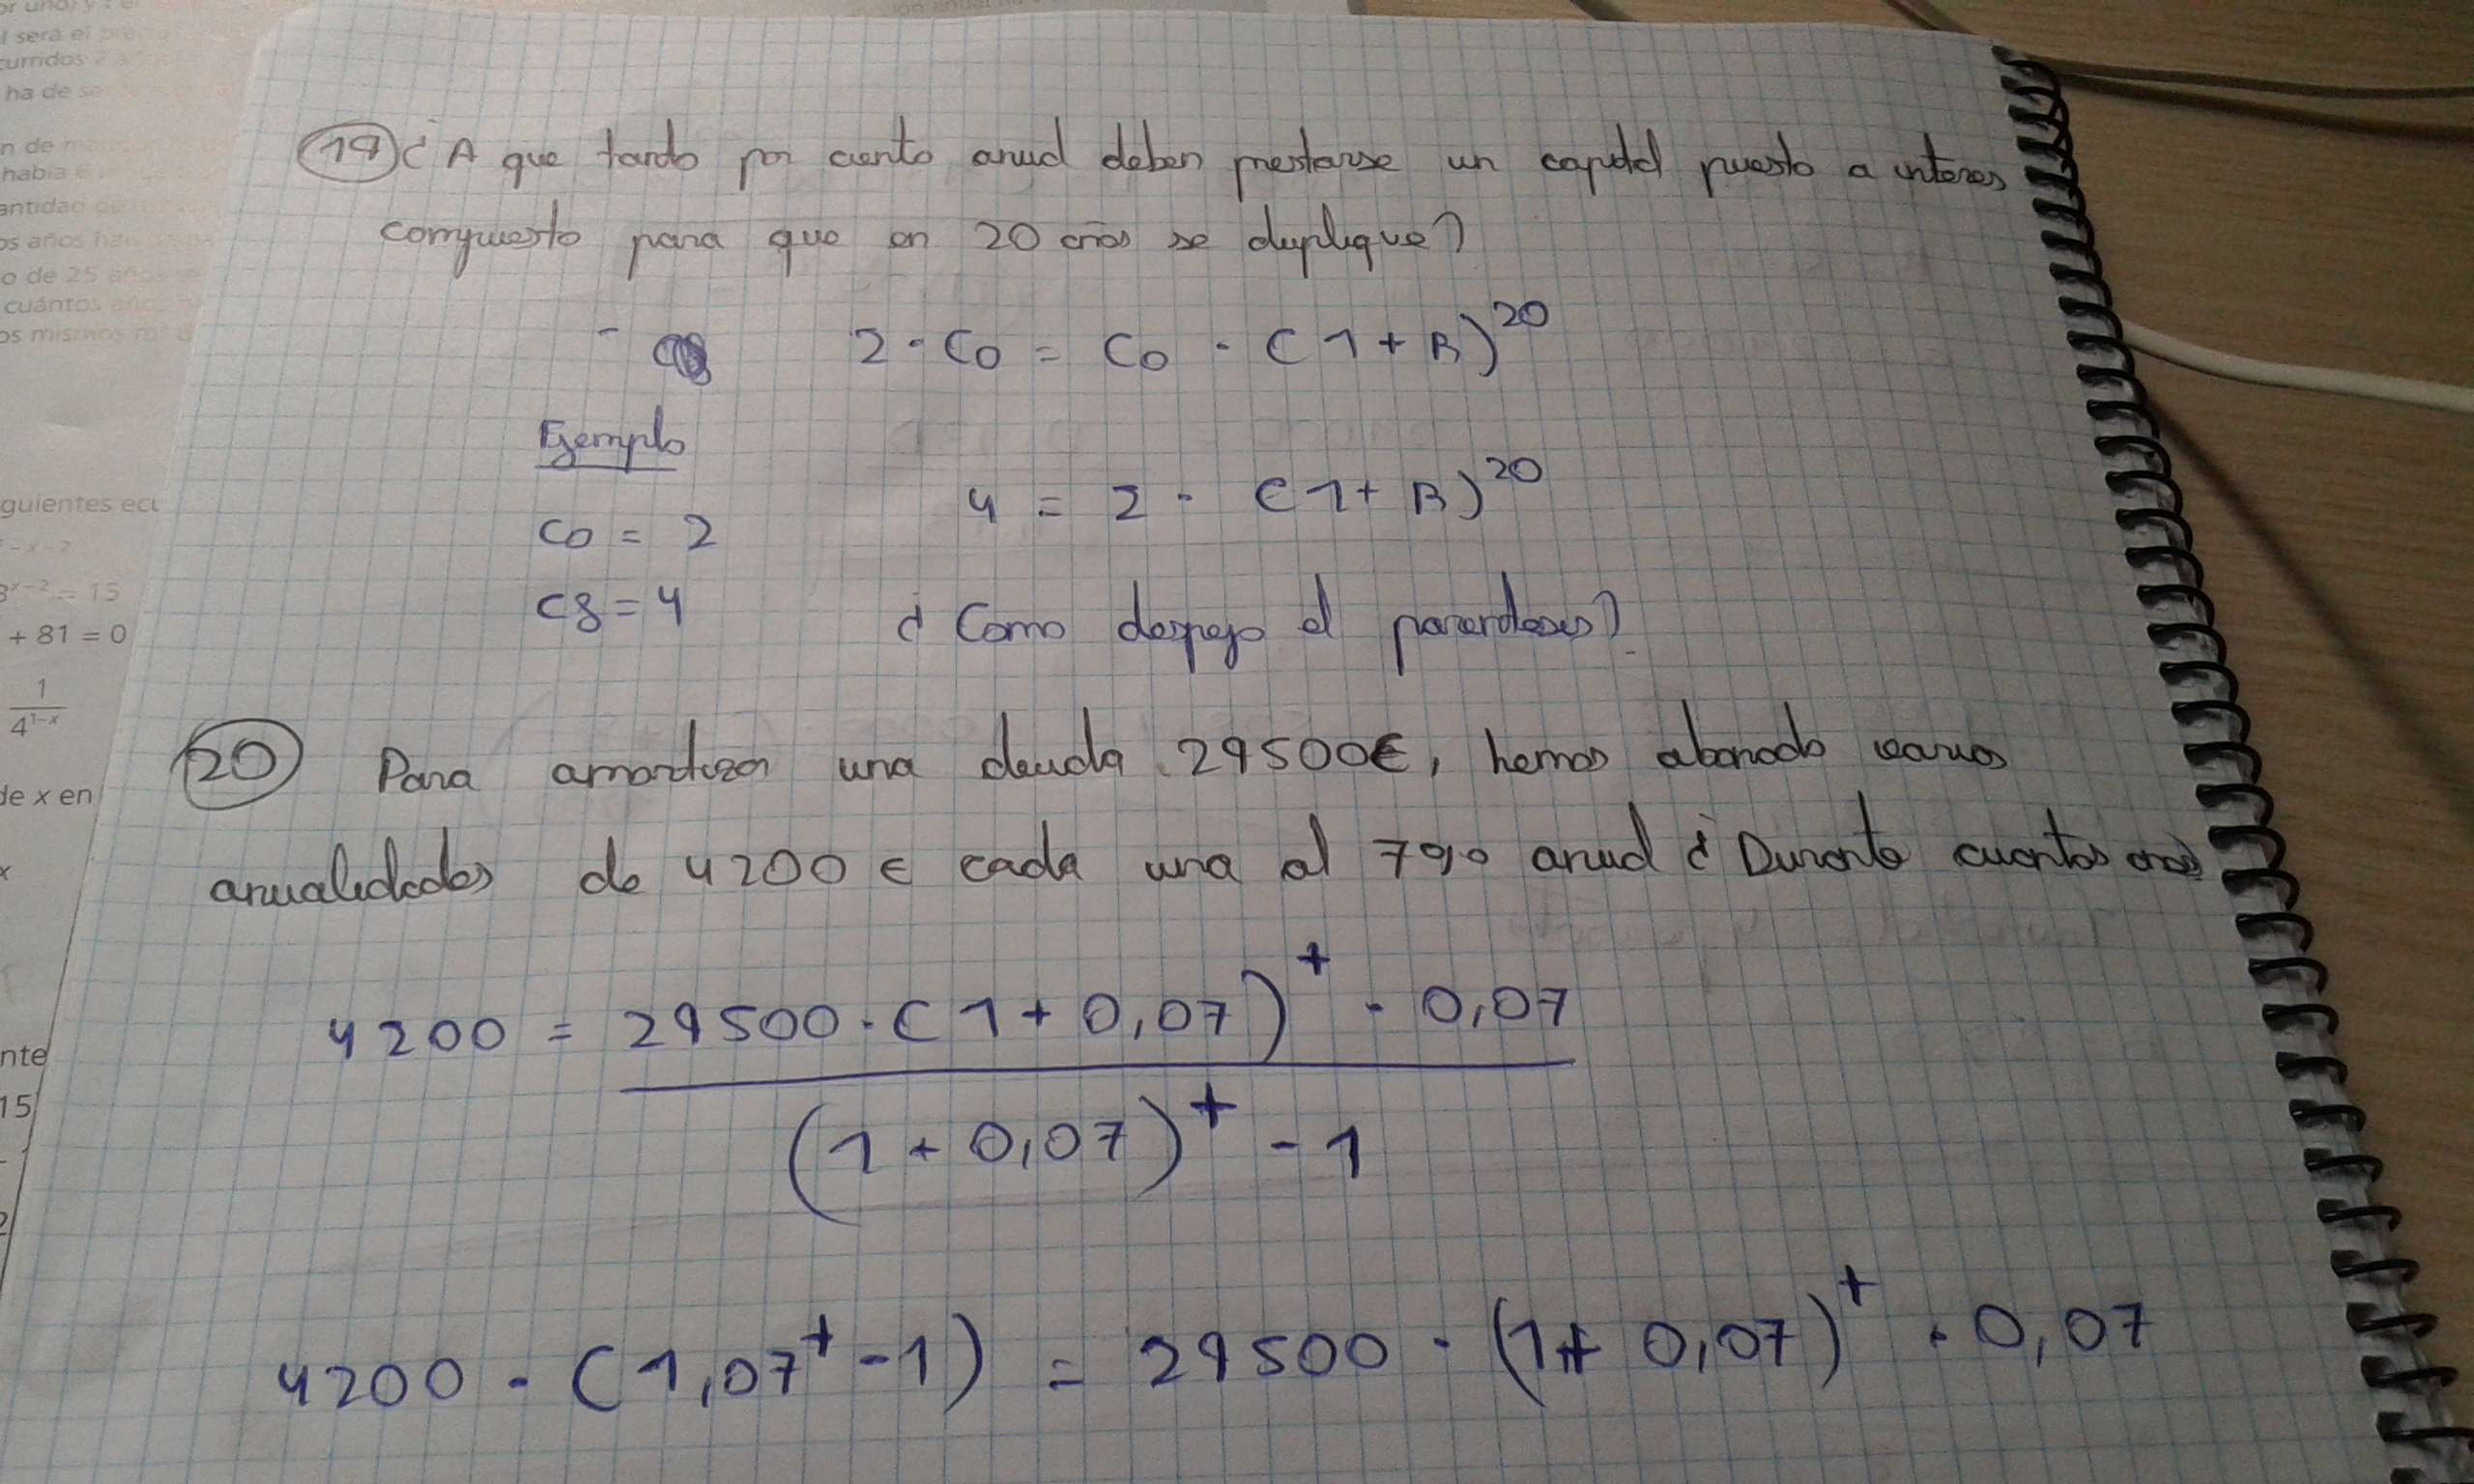 or uno) y t el
l será el pre
curridos 2 a
ha de se
n de m
había 6
antidad de
os años han pa
o de 25 años
cuántos año
os mismos m
guientes ecu
- x - 2
3^{x-2} = 15
+ 81 = 0
1/4^{1-x}
de x en
x
nte
15
19 ¿A que tanto por ciento anual deben prestarse un capital puesto a interes
compuesto para que en 20 años se duplique?
2 · Co = Co · (1 + R)^20
Ejemplo
4 = 2 · (1 + R)^20
Co = 2
Cf = 4
¿Como despejo el parentesis?
20 Para amortizar una deuda 29500€, hemos abonado varias
anualidades de 4200 € cada una al 7% anual ¿Durante cuantos años?
4200 = 29500 · (1 + 0,07)^t · 0,07
(1 + 0,07)^t - 1
4200 · (1,07^t - 1) = 29500 · (1 + 0,07)^t · 0,07